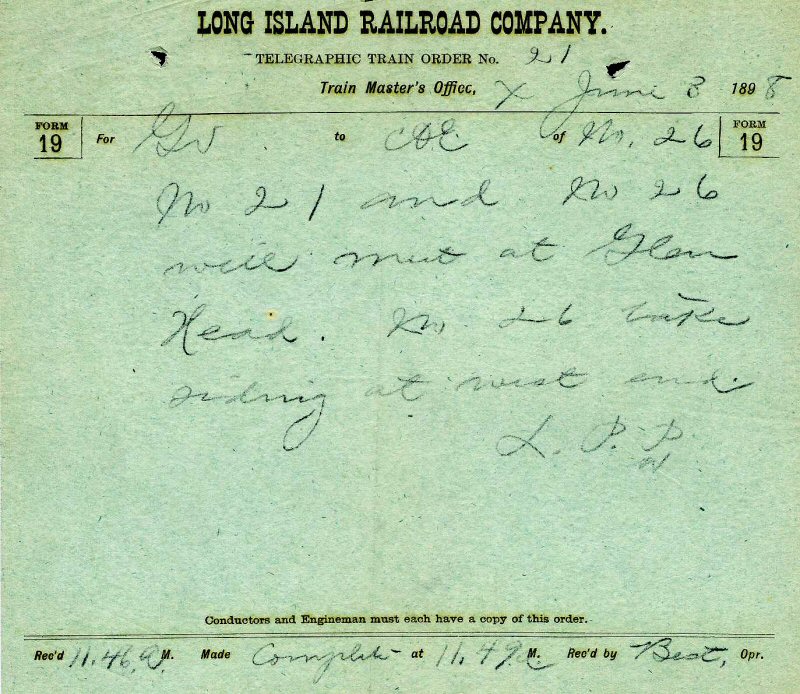 LONG ISLAND RAILROAD COMPANY.
TELEGRAPHIC TRAIN ORDER No. 21
Train Master's Office, X June 3 1898
FORM 19 For Gv to C&E of No. 26 FORM 19
No 21 and No 26
will meet at Glen
Head. No 26 take
siding at west end.
L. P. P.
Conductors and Engineman must each have a copy of this order.
Rec'd 11.46 A M. Made Complete at 11.49 A M. Rec'd by Best, Opr.